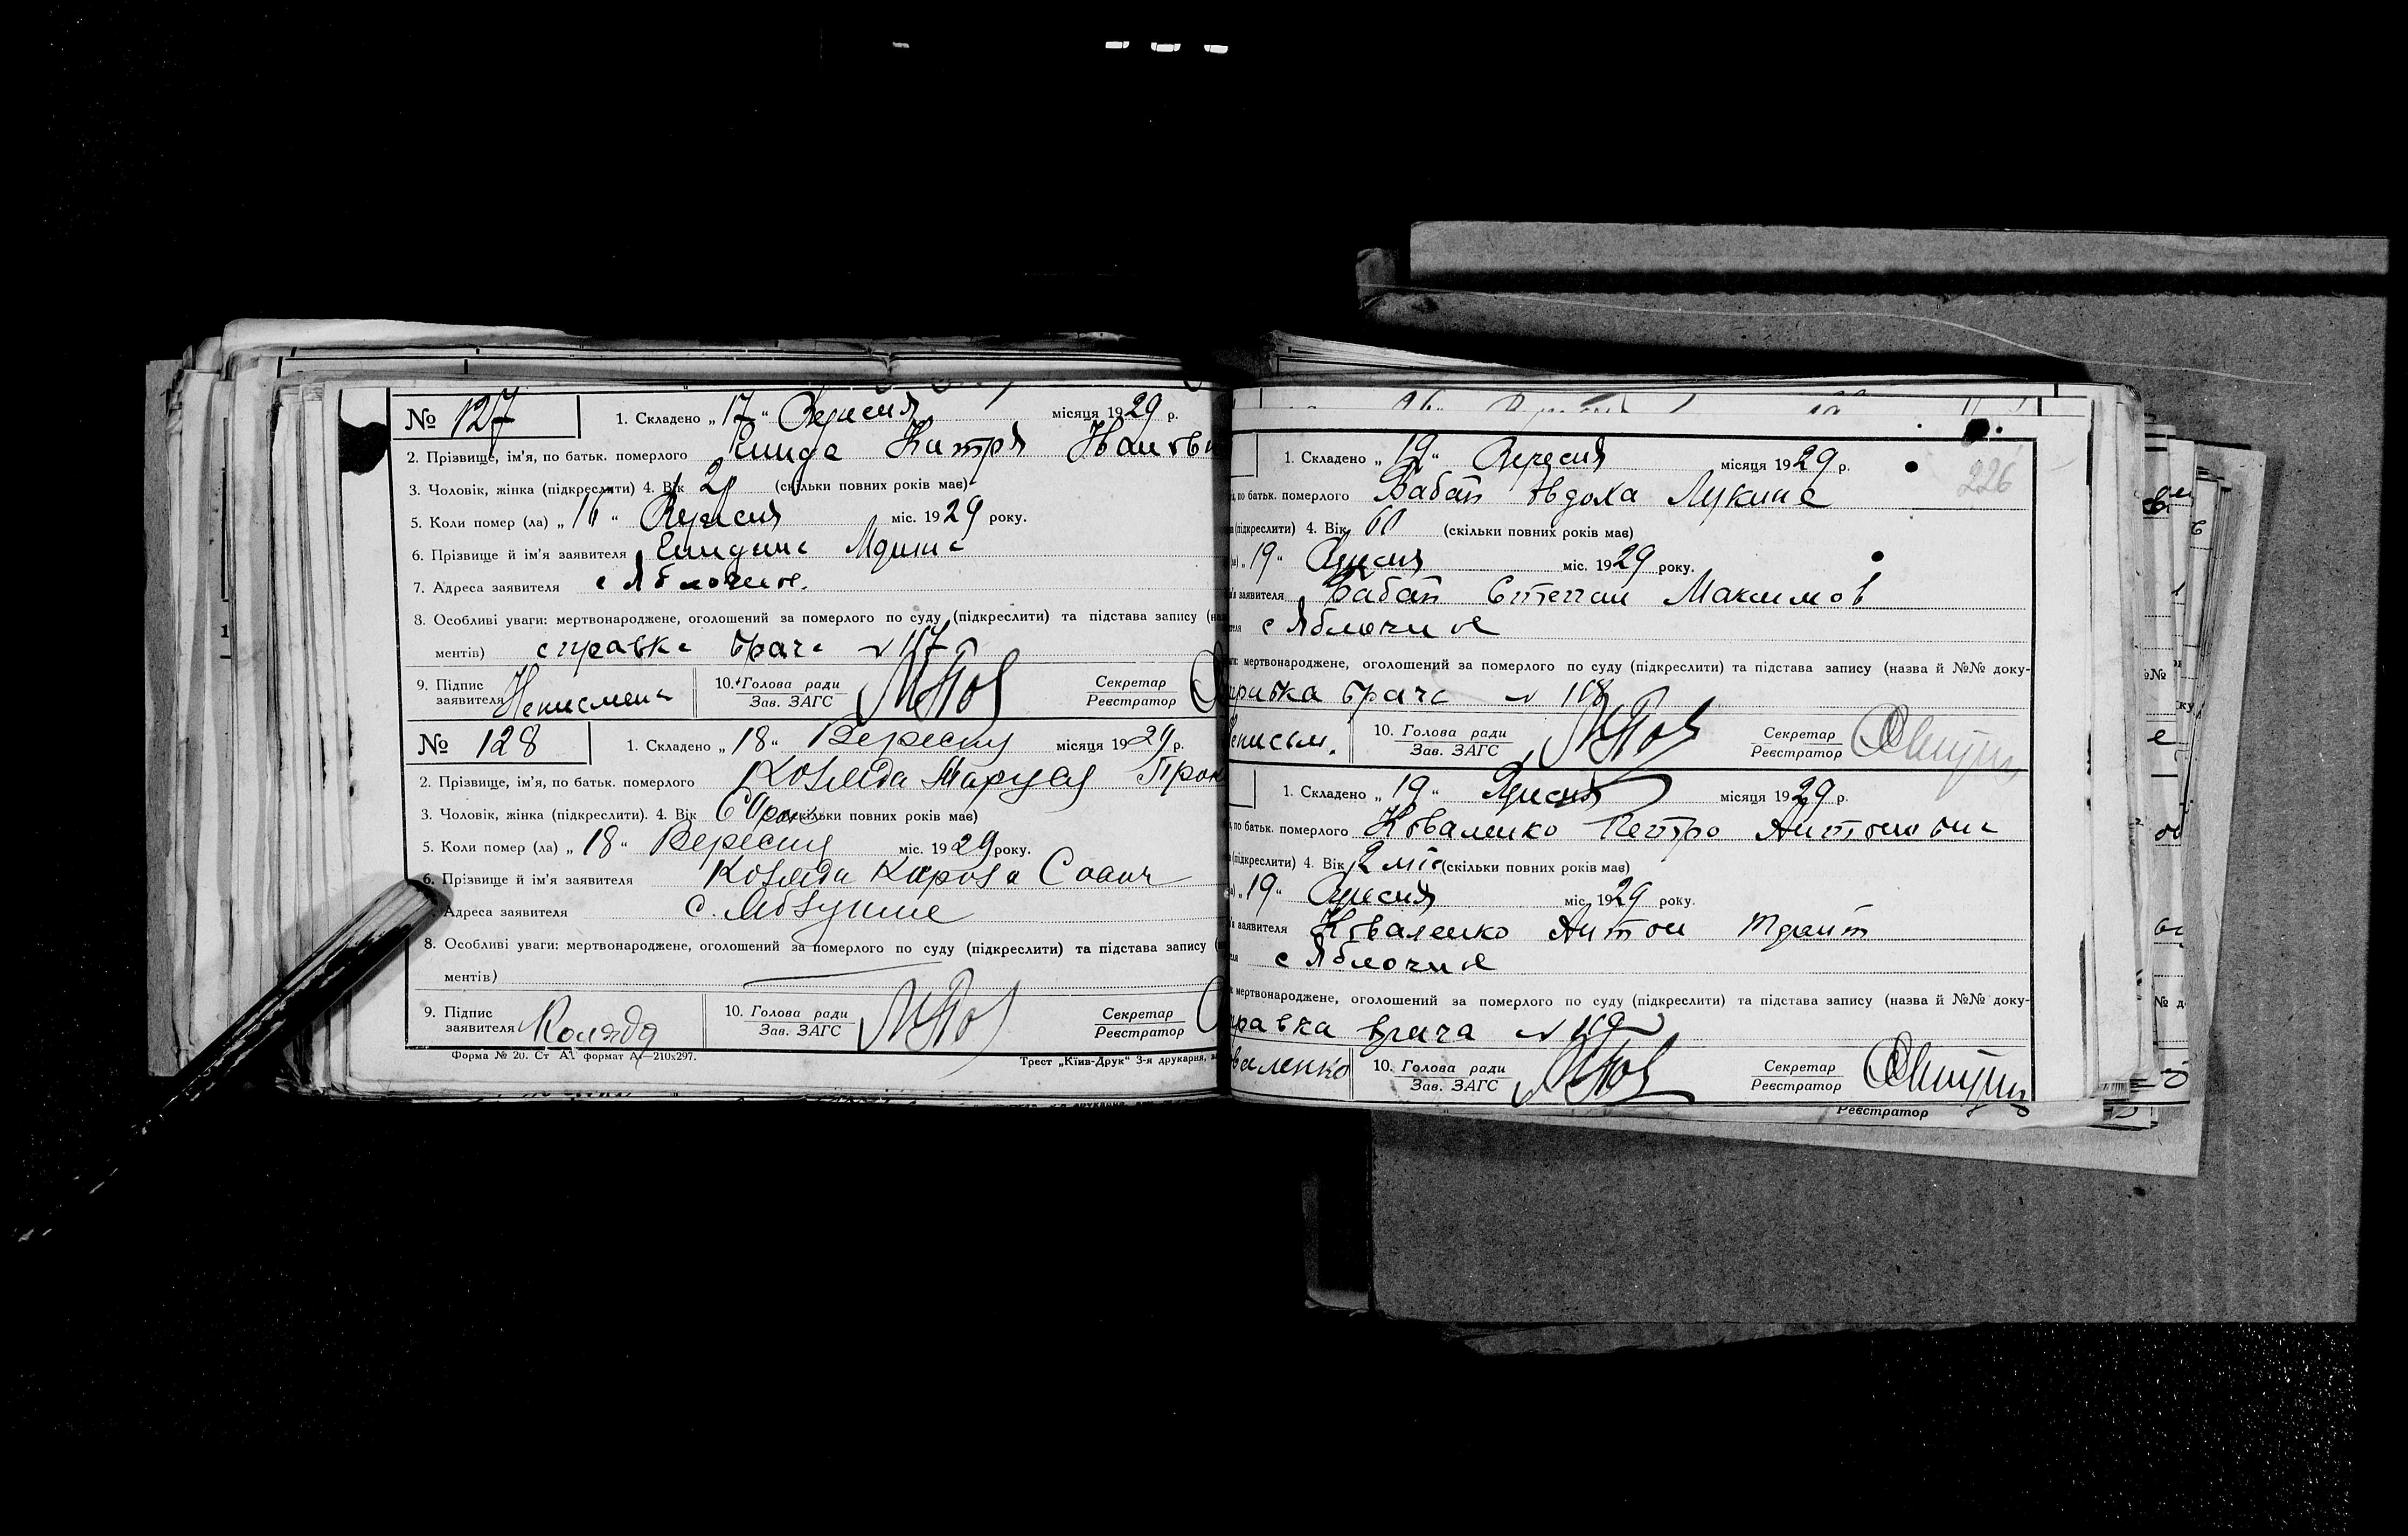 № 127 1. Складено „17“ Вересня місяця 1929 р.
2. Прізвище, ім'я, по батьк. померлого Катря
3. Чоловік, жінка (підкреслити) 4. Вік (скільки повних років має)
5. Коли помер (ла) „16“ Вересня міс. 1929 року.
6. Прізвище й ім'я заявителя
7. Адреса заявителя с Яблочное.
8. Особливі уваги: мертвонароджене, оголошений за померлого по суду (підкреслити) та підстава запису
ментів) справка врача № 117
9. Підпис заявителя Неписмена 10. Голова ради Зав. ЗАГС Секретар Реєстратор
№ 128 1. Складено „18“ Вересня місяця 1929 р.
2. Прізвище, ім'я, по батьк. померлого Коляда Маруся Прок
3. Чоловік, жінка (підкреслити). 4. Вік (скільки повних років має)
5. Коли помер (ла) „18“ Вересня міс. 1929 року.
6. Прізвище й ім'я заявителя Коляда
Адреса заявителя с.
8. Особливі уваги: мертвонароджене, оголошений за померлого по суду (підкреслити) та підстава запису
ментів)
9. Підпис заявителя Коляда 10. Голова ради Зав. ЗАГС Секретар Реєстратор
Форма № 20. Ст А1 формат А4—210х297. Трест „Київ-Друк“ 3-я друкарня,
226
1. Складено „19“ Вересня місяця 1929 р.
по батьк. померлого Бабак Явдоха Лукина
(підкреслити) 4. Вік 60 (скільки повних років має)
„19“ Вересня міс. 1929 року.
заявителя Бабак Степан Максимов
с Яблочное
мертвонароджене, оголошений за померлого по суду (підкреслити) та підстава запису (назва й №№ доку-
справка врача № 118
10. Голова ради Зав. ЗАГС Секретар Реєстратор
1. Складено „19“ Вересня місяця 1929 р.
по батьк. померлого Коваленко Петро Антонович
(підкреслити) 4. Вік 2 міс (скільки повних років має)
„19“ Вересня міс. 1929 року.
заявителя Коваленко Антон
с Яблочное
мертвонароджене, оголошений за померлого по суду (підкреслити) та підстава запису (назва й №№ доку-
справка врача № 119
валенко 10. Голова ради Зав. ЗАГС Секретар Реєстратор
Реєстратор